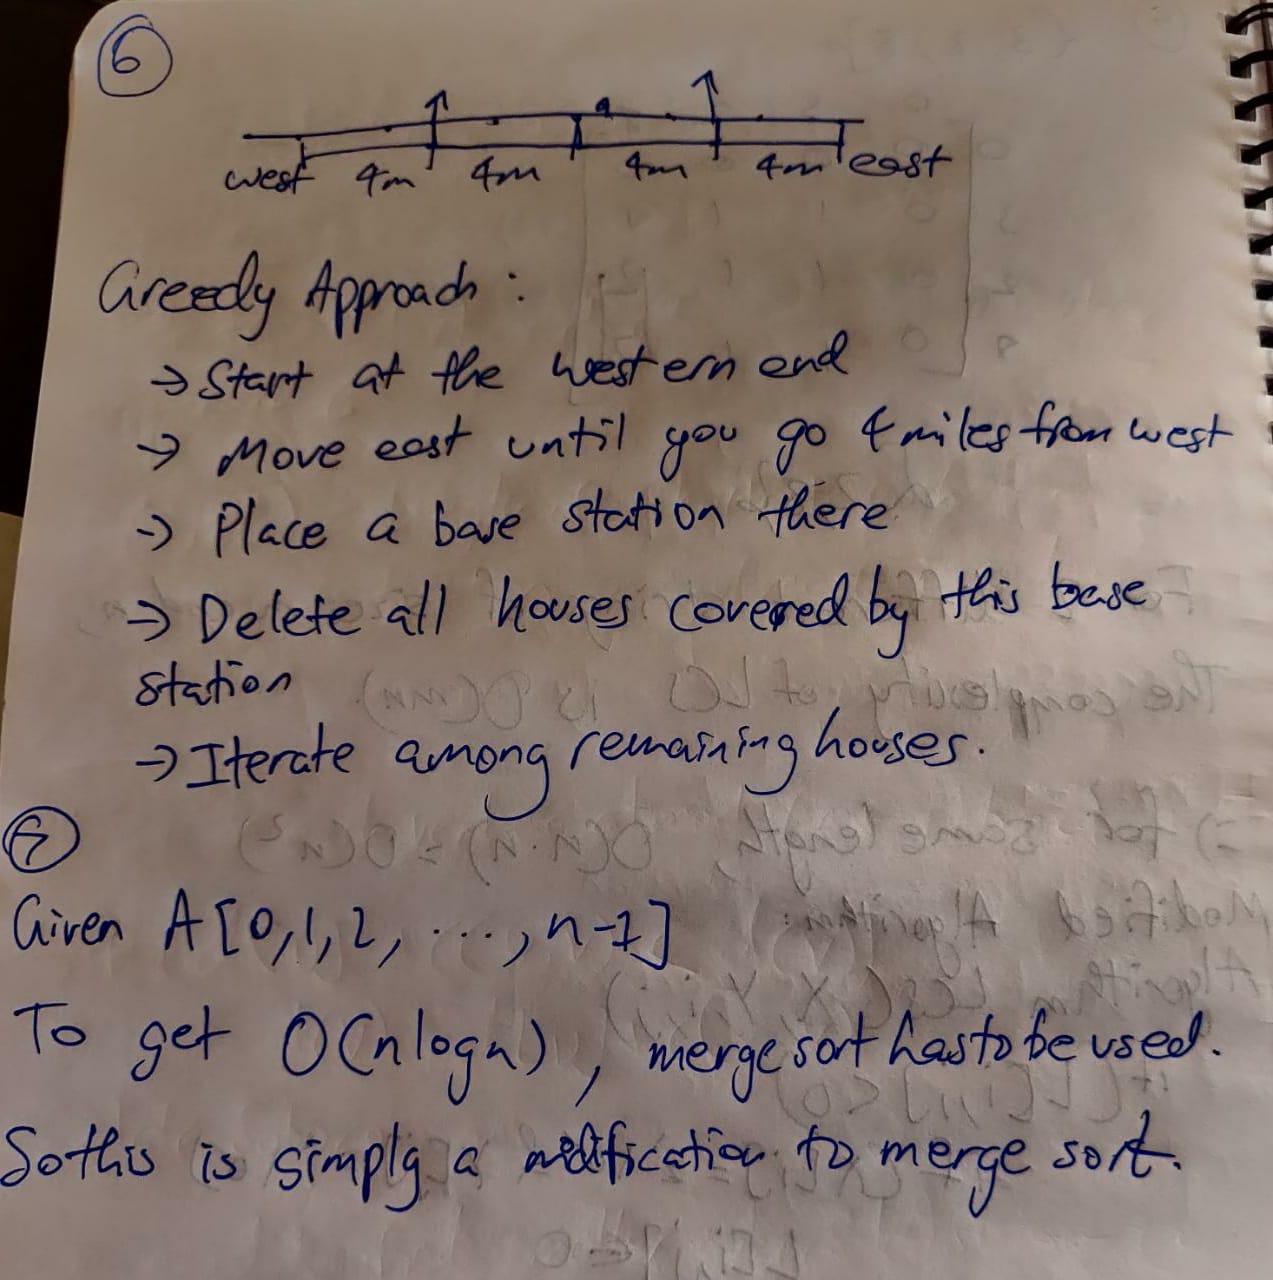 6
west 4m 4m 4m 4m east
Greedy Approach :
→ Start at the western end
→ Move east until you go 4 miles from west
→ Place a base station there
→ Delete all houses covered by this base
station
→ Iterate among remaining houses.
7
Given A[0,1,2, ..., n-1]
To get O(nlogn), merge sort has to be used.
So this is simply a modification to merge sort.